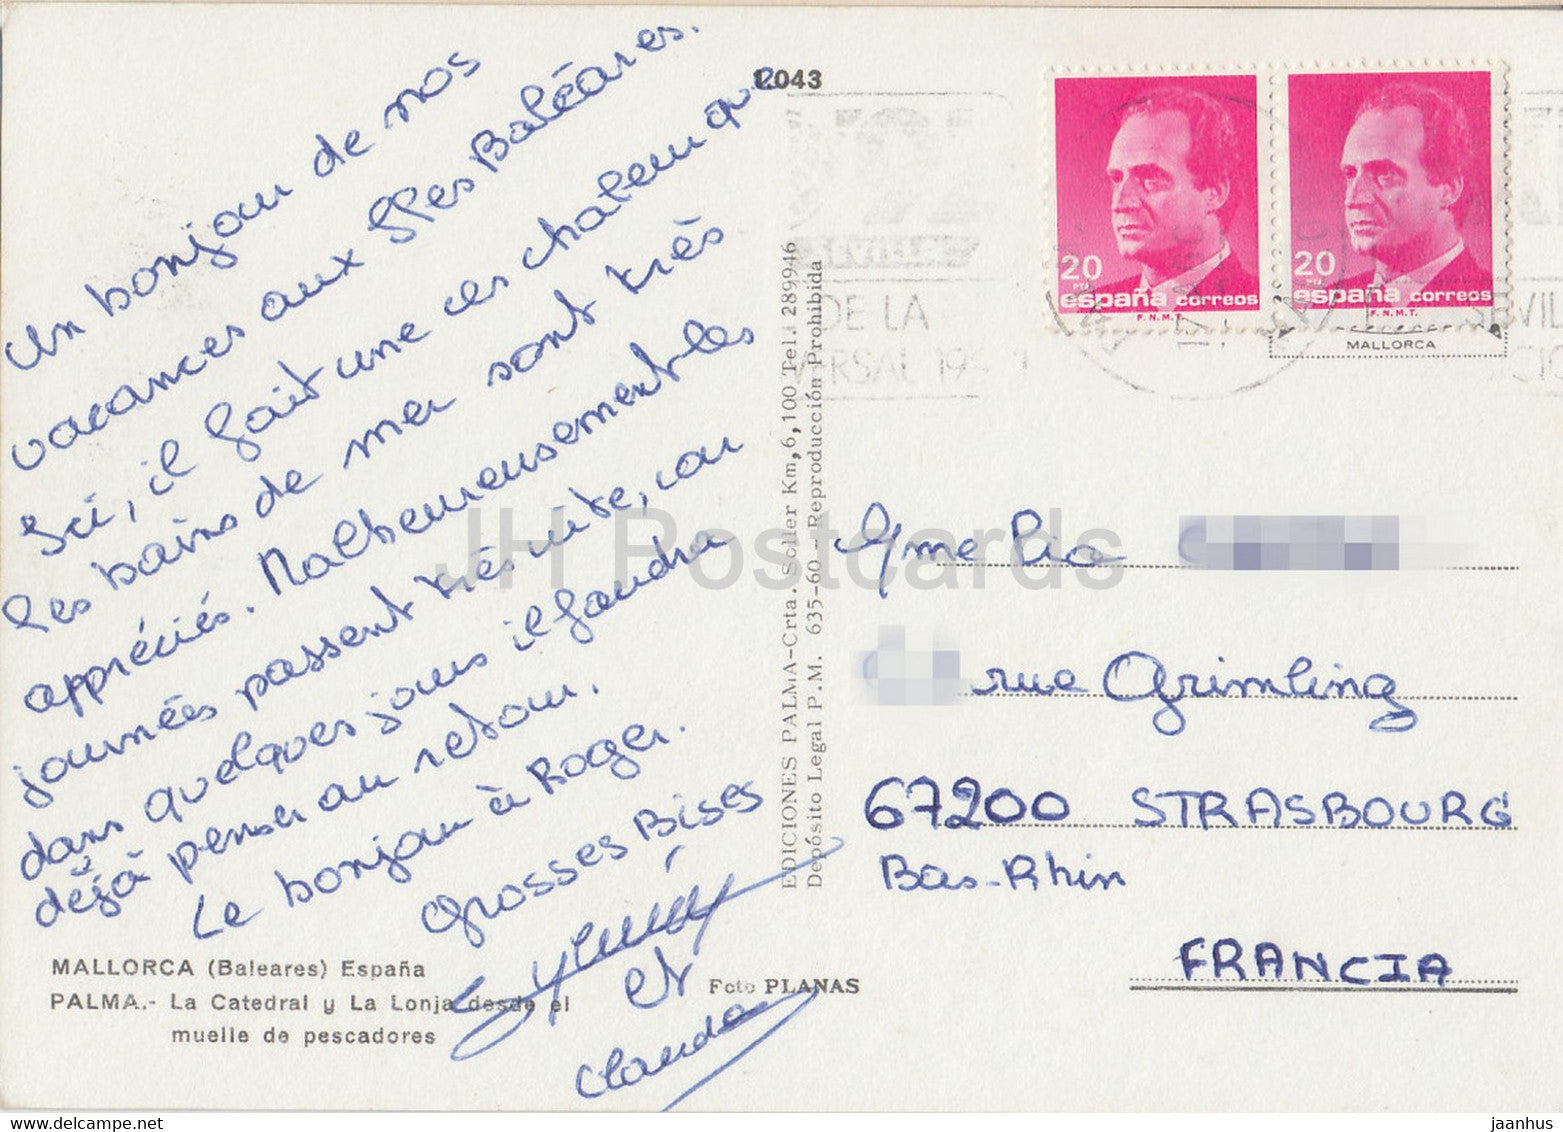 Un bonjour de nos
vacances aux Iles Baléares.
Ici, il fait une ces chaleur que
les bains de mer sont très
appréciés. Malheureusement les
journées passent très vite, car
dans quelques jours il faudra
déjà penser au retour.
Le bonjour à Roger.
Grosses Bises
et
Claude
MALLORCA (Baleares) España
PALMA.- La Catedral y La Lonja desde el
muelle de pescadores
Foto PLANAS
EDICIONES PALMA-Crta. Soller Km, 6,100 Tel. 289946
Depósito Legal P. M. 635-60-Reproducción Prohibida
1.043
20
PTA
españa correos
F.N.M.T.
20
PTA
españa correos
F.N.M.T.
MALLORCA
DE LA
VERSAL 19
SEVIL
Mme Pia
rue Grimling
67200 STRASBOURG
Bas-Rhin
FRANCIA
JH Postcards
jaanhus
www.delcampe.net